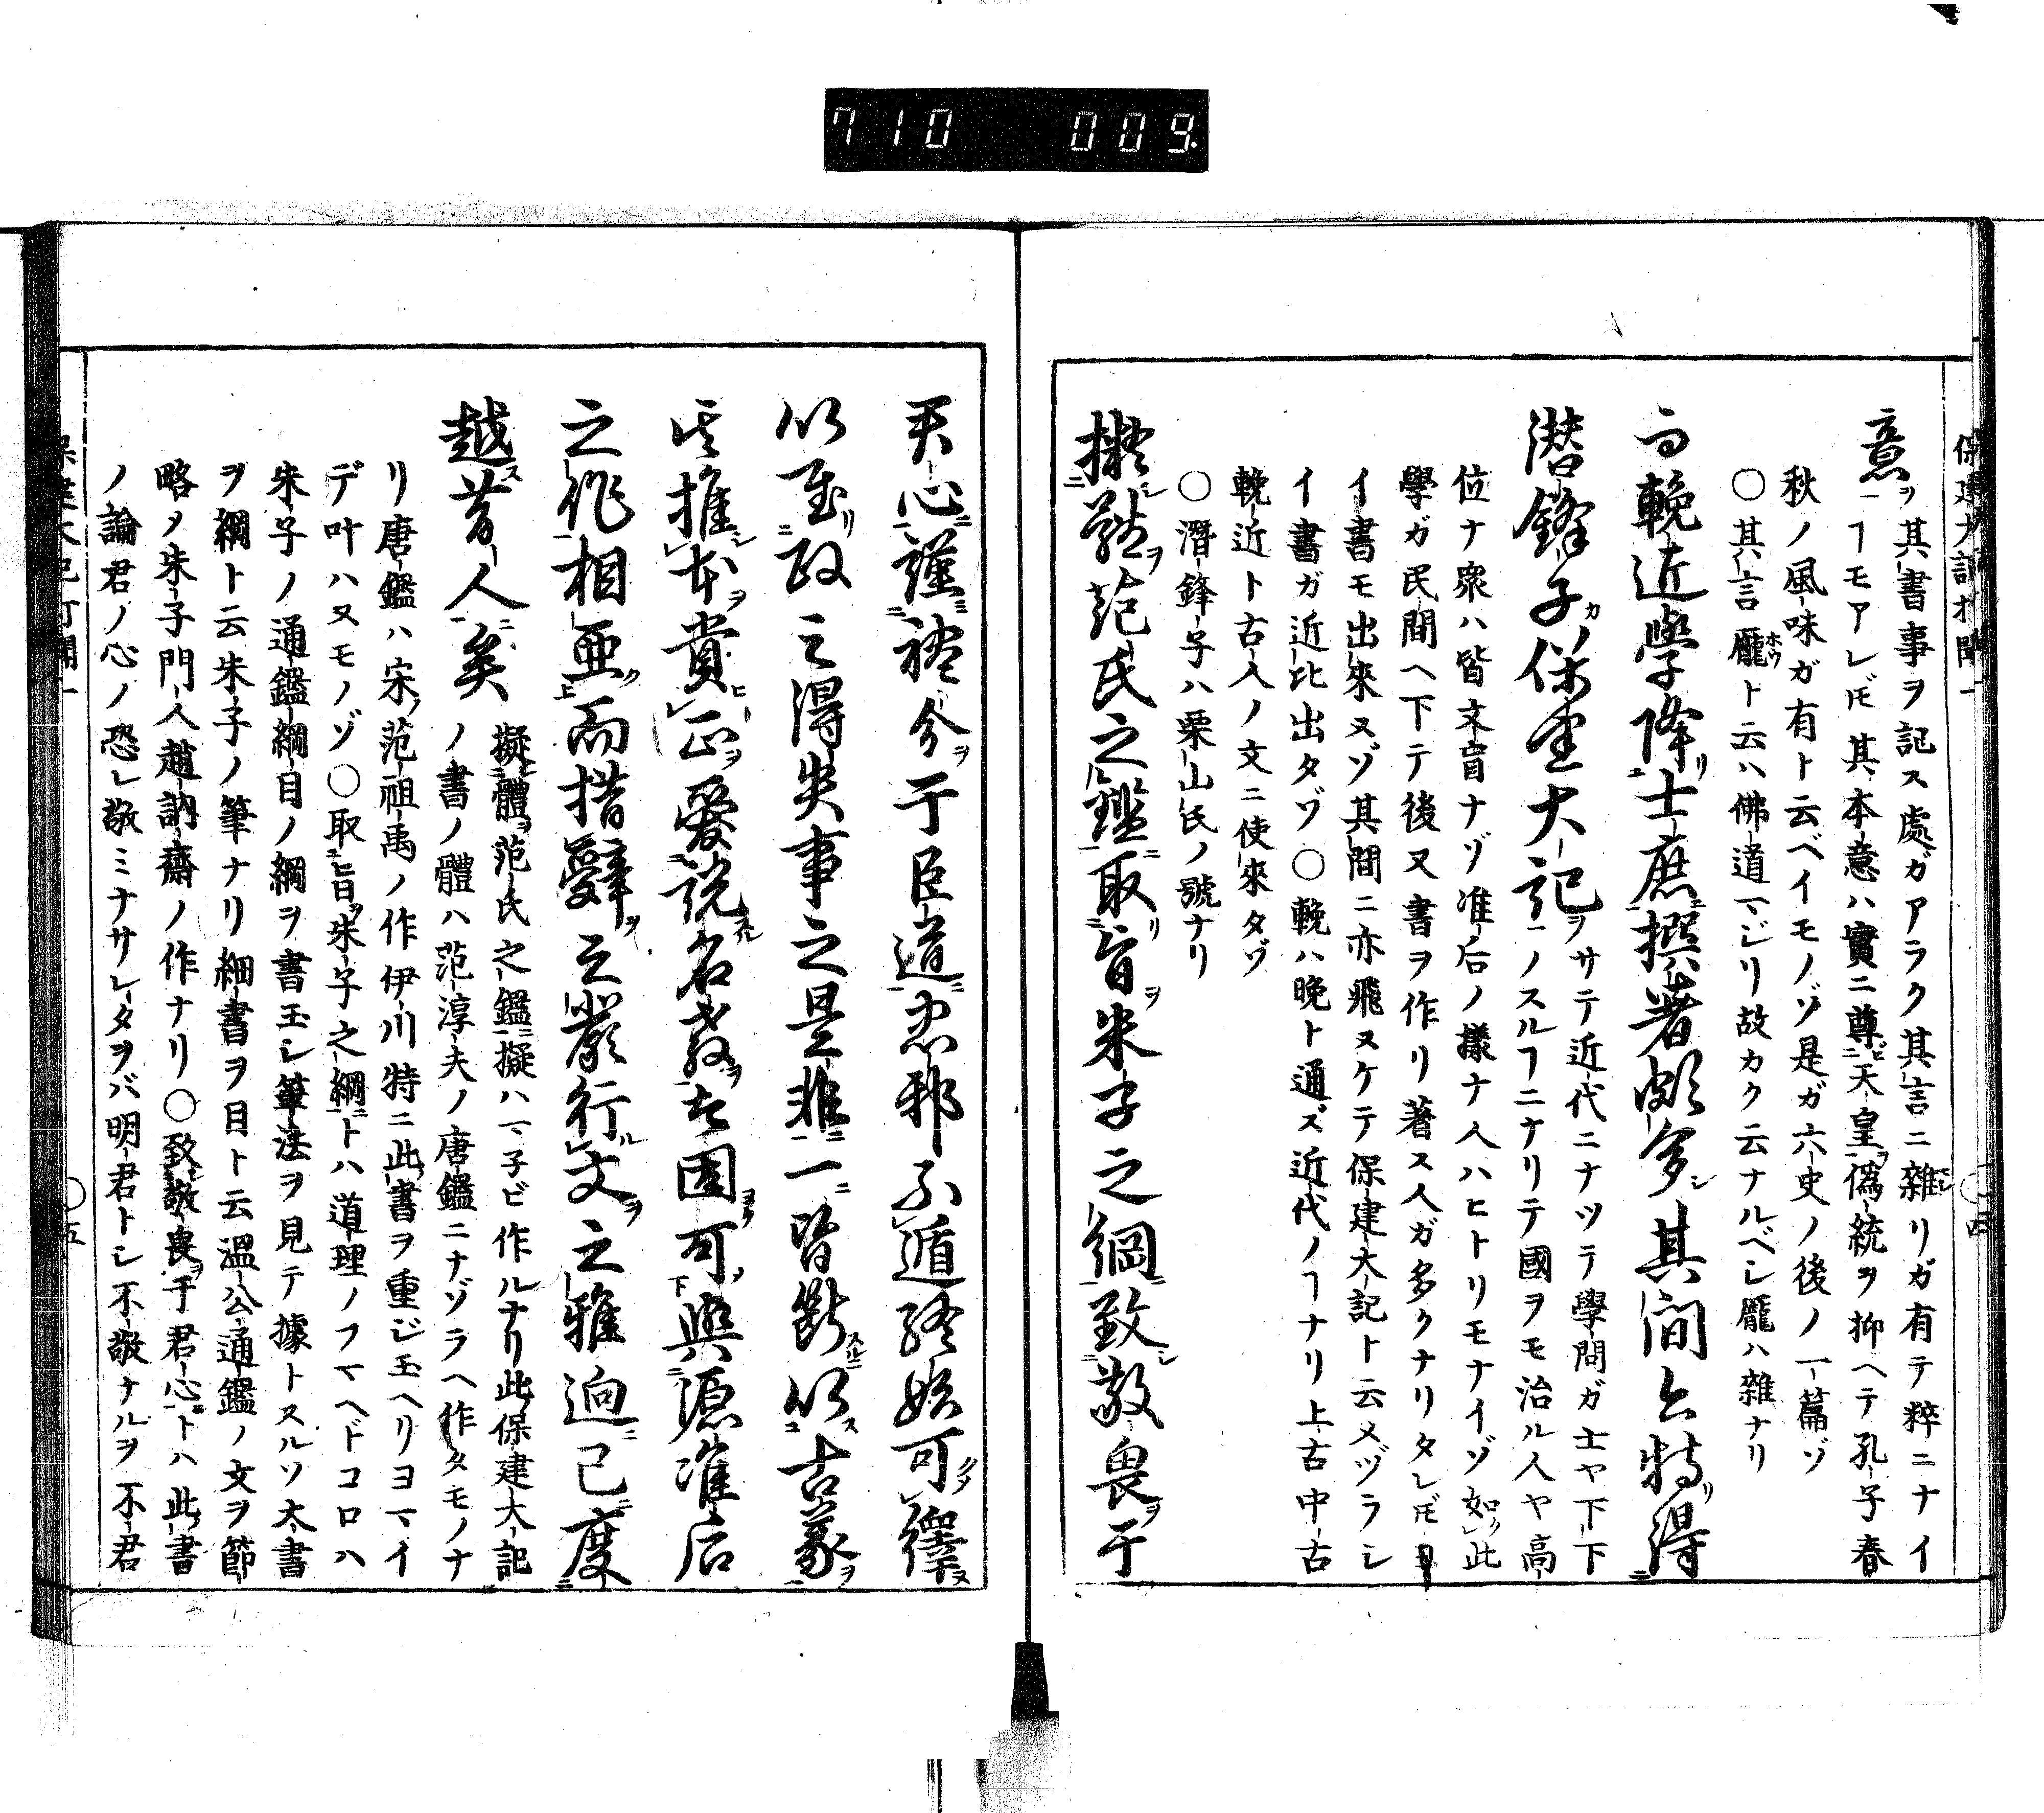 710 009.
保建大記打聞一 〇四
意ヲ其書事ヲ記ス處ガアラク其言ニ雜リガ有テ粹ニナイ
ヿモアレ𪜈其本意ハ實ニ尊天皇ヲ僞統ヲ抑ヘテ孔子春
秋ノ風味ガ有ト云ベイモノゾ是ガ六史ノ後ノ一篇ゾ
〇其言龐ト云ハ佛道マジリ故カク云ナルベシ龐ハ雜ナリ
輓近學降士庶撰著頗多其間特得
潛鋒子保建大記ヲサテ近代ニナツテ學問ガ士ヤ下下
ノスルヿニナリテ國ヲモ治ル人ヤ高
位ナ衆ハ皆文盲ナゾ准后ノ樣ナ人ハヒトリモナイゾ如此
學ガ民間ヘ下テ後又書ヲ作リ著ス人ガ多クナリタレ𪜈
イ書モ出來ヌゾ其間ニ亦飛ヌケテ保建大記ト云メヅラシ
イ書ガ近比出タゾ〇輓ハ晩ト通ズ近代ノヿナリ上古中古
輓近ト古人ノ文ニ使來タゾ
〇潛鋒子ハ栗山氏ノ號ナリ
擬體范氏之鑑取旨朱子之綱致敬畏于
天心謹于臣道忠邪不遁終始可繹
以至政之得失事之是非一皆斷以古義
其推本貴正愛説名教固可與源准后
之作相亞而措辭之嚴行文之雅迥已度
越昔人矣擬體范氏之鑑擬ハマ子ビ作ルナリ此保建大記
ノ書ノ體ハ范淳夫ノ唐鑑ニナゾラヘ作タモノナ
リ唐鑑ハ宋ノ范祖禹ノ作伊川特ニ此書ヲ重ジ玉ヘリヨマイ
デ叶ハヌモノゾ〇取旨朱子之綱トハ道理ノフマヘドコロハ
朱子ノ通鑑綱目ノ綱ヲ書玉シ筆法ヲ見テ據トスルソ大書
ヲ綱ト云朱子ノ筆ナリ細書ヲ目ト云溫公通鑑ノ文ヲ節
略ノ朱子門人趙訥齋ノ作ナリ〇致敬畏于君心トハ此書
ノ論君ノ心ノ恐レ敬ミナサレタヲバ明君トシ不敬ナルヲ不君
保建大記打聞一 〇五